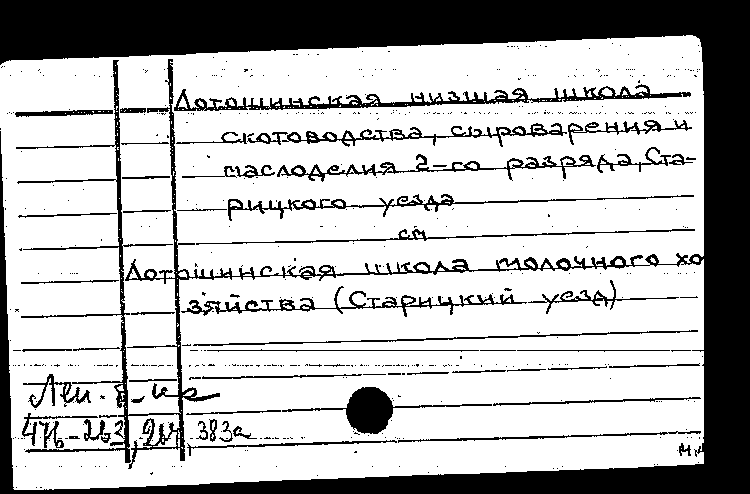 Лотошинская низшая школа
скотоводства, сыроварения и
маслоделия 2-го разряда, Ста-
рицкого уезда
см
Лотошинская школа молочного хо
зяйства (Старицкий уезд)
Лен. б-ка
47б-263, 264, 383а